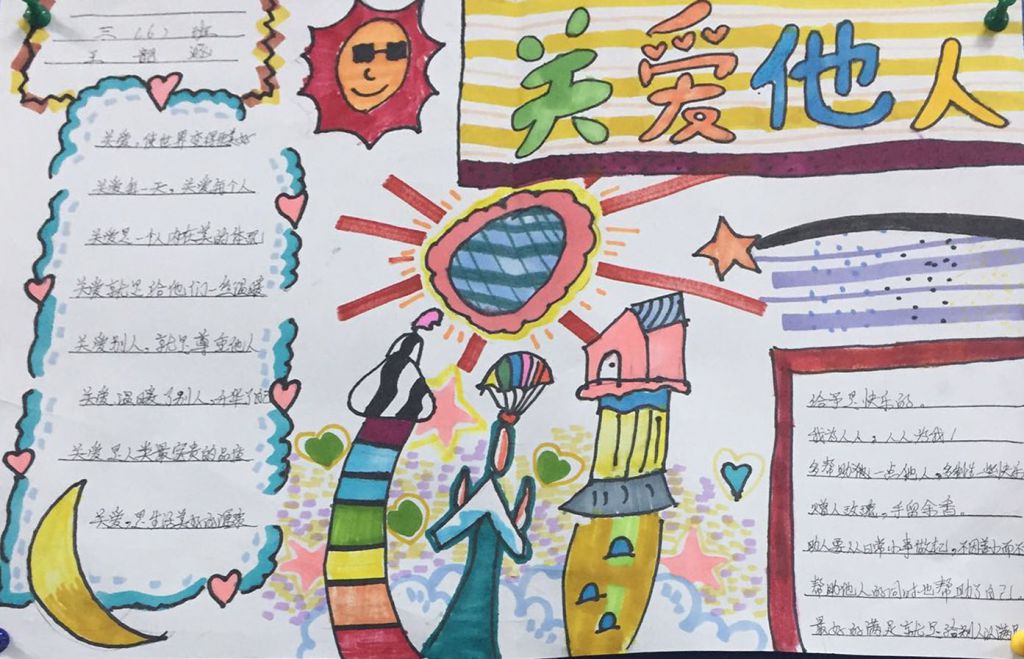 三（6）班
王
关爱他人
关爱，使世界变得美好
关爱每一天，关爱每个人
关爱是一个人内在美的体现
关爱就是给他们一丝温暖
关爱别人，就是尊重他人
关爱，温暖了别人，升华了
关爱是人类最宝贵的品质
关爱，是生活美好的源泉
给予是快乐的。
我为人人，人人为我！
多帮助一点他人，多一些快乐
赠人玫瑰，手留余香。
助人要从日常小事做起，不因善小而不
帮助他人的同时也帮助了自己。
最好的满足就是给别人以满足